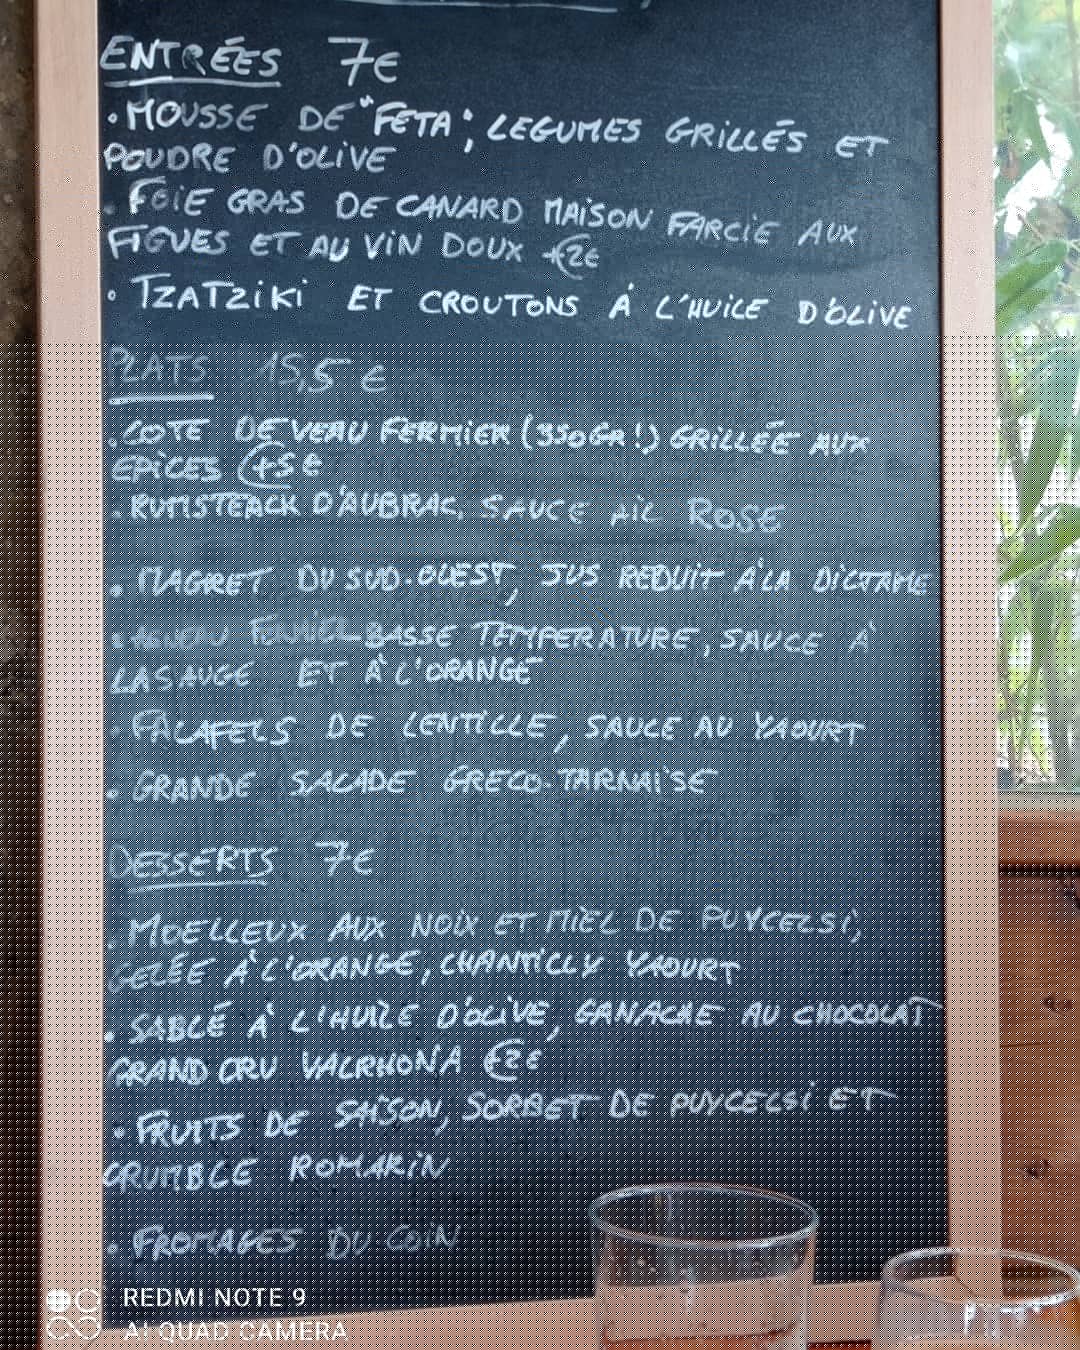 ENTRÉES 7€
• MOUSSE DE "FETA", LEGUMES GRILLÉS ET
POUDRE D'OLIVE
• FOIE GRAS DE CANARD MAISON FARCIE AUX
FIGUES ET AU VIN DOUX +2€
• TZATZIKI ET CROUTONS À L'HUILE D'OLIVE
PLATS 15,5 €
• COTE DE VEAU FERMIER (350GR!) GRILLÉE AUX
EPICES +5€
• RUMSTEACK D'AUBRAC, SAUCE AIL ROSE
• MAGRET DU SUD-OUEST, JUS REDUIT À LA DICTAME
• AGNEAU FERMIER BASSE TEMPERATURE, SAUCE À
LA SAUGE ET À L'ORANGE
• FALAFELS DE LENTILLE, SAUCE AU YAOURT
• GRANDE SALADE GRECO-TARNAISE
DESSERTS 7€
• MOELLEUX AUX NOIX ET MIEL DE PUYCELSI,
GELÉE À L'ORANGE, CHANTILLY YAOURT
• SABLÉ À L'HUILE D'OLIVE, GANACHE AU CHOCOLAT
GRAND CRU VALRHONA +2€
• FRUITS DE SAISON, SORBET DE PUYCELSI ET
CRUMBLE ROMARIN
• FROMAGES DU COIN
REDMI NOTE 9
AI QUAD CAMERA